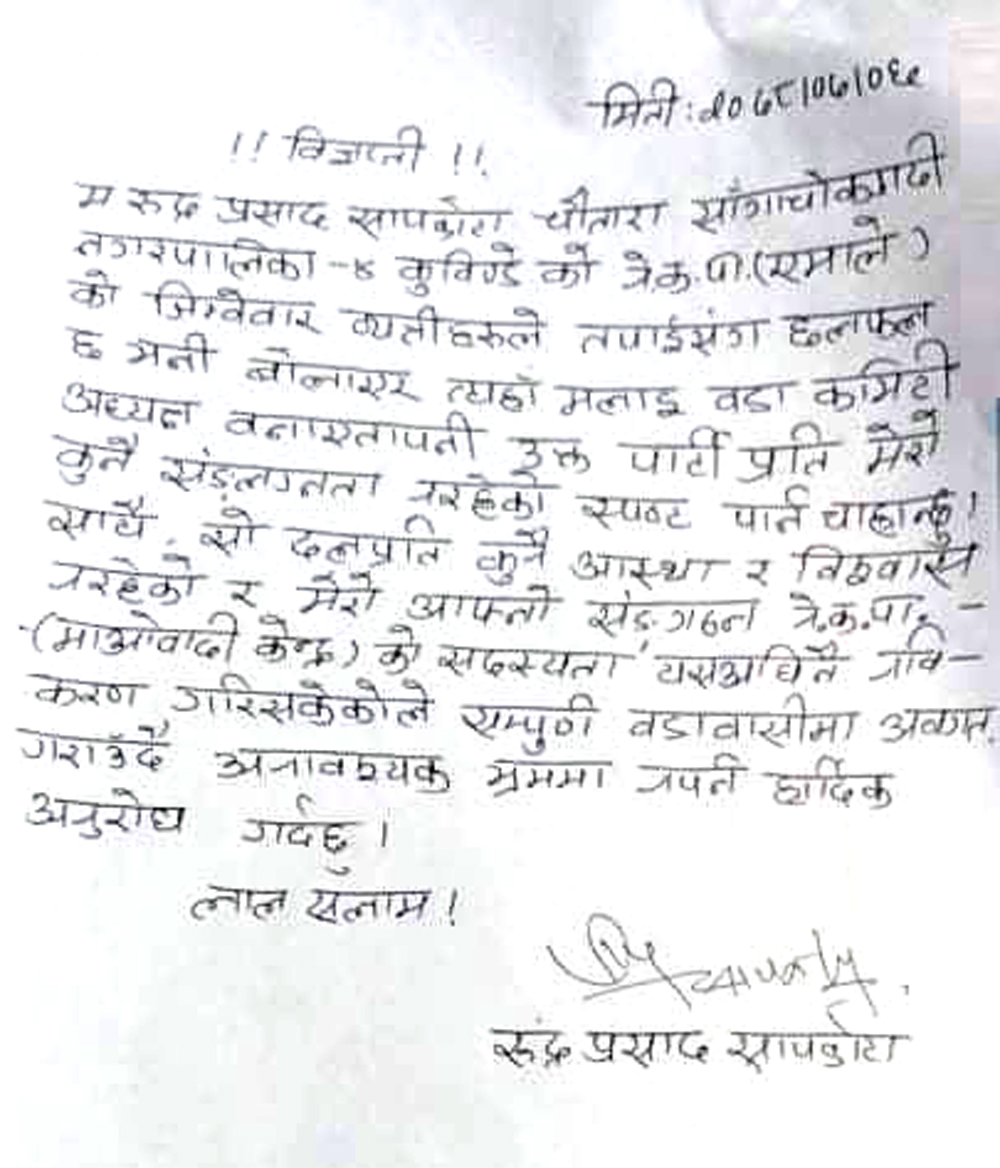 मिती : २०७८।०७।०६
!! विज्ञप्ती !!
म रुद्र प्रसाद सापकोटा चौतारा साँगाचोकगढी
नगरपालिका -४ कुविण्डे को ने.क.पा.(एमाले)
को जिम्वेवार व्यतीहरुले तपाईसंग छलफल
छ भनी बोलाएर त्यहाँ मलाइ वडा कमिटी
अध्यक्ष वनाएतापनी उक्त पार्टी प्रति मेरो
कुनै संङ्लग्नता नरहेको स्पष्ट पार्न चाहान्छु।
साथै सो दलप्रति कुनै आस्था र विश्ववास
नरहेको र मेरो आफ्नो संङ्गठन ने.क.पा. -
(माओवादी केन्द्र) को सदस्यता यसअघिनै नवि-
करण गरिसकेकोले सम्पुर्ण वडावासीमा अवगत
गराउँदै अनावश्यक भ्रममा नपर्न हार्दिक
अनुरोध गर्दछु।
लाल सलाम!
रुद्र प्रसाद सापकोटा